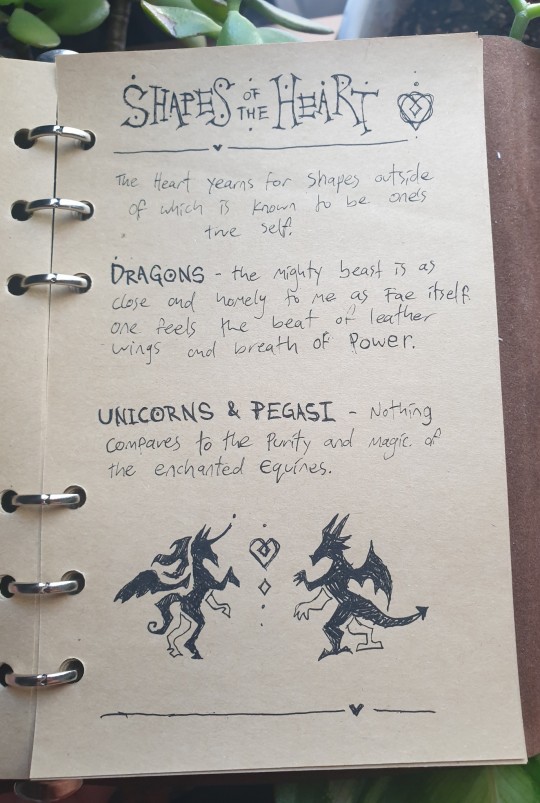 SHAPES OF THE HEART
The Heart yearns for shapes outside
of which is known to be one's
true self.
DRAGONS - the mighty beast is as
close and homely to me as Fae itself.
one feels the beat of leather
wings and breath of Power.
UNICORNS & PEGASI - Nothing
compares to the Purity and Magic of
the enchanted Equines.